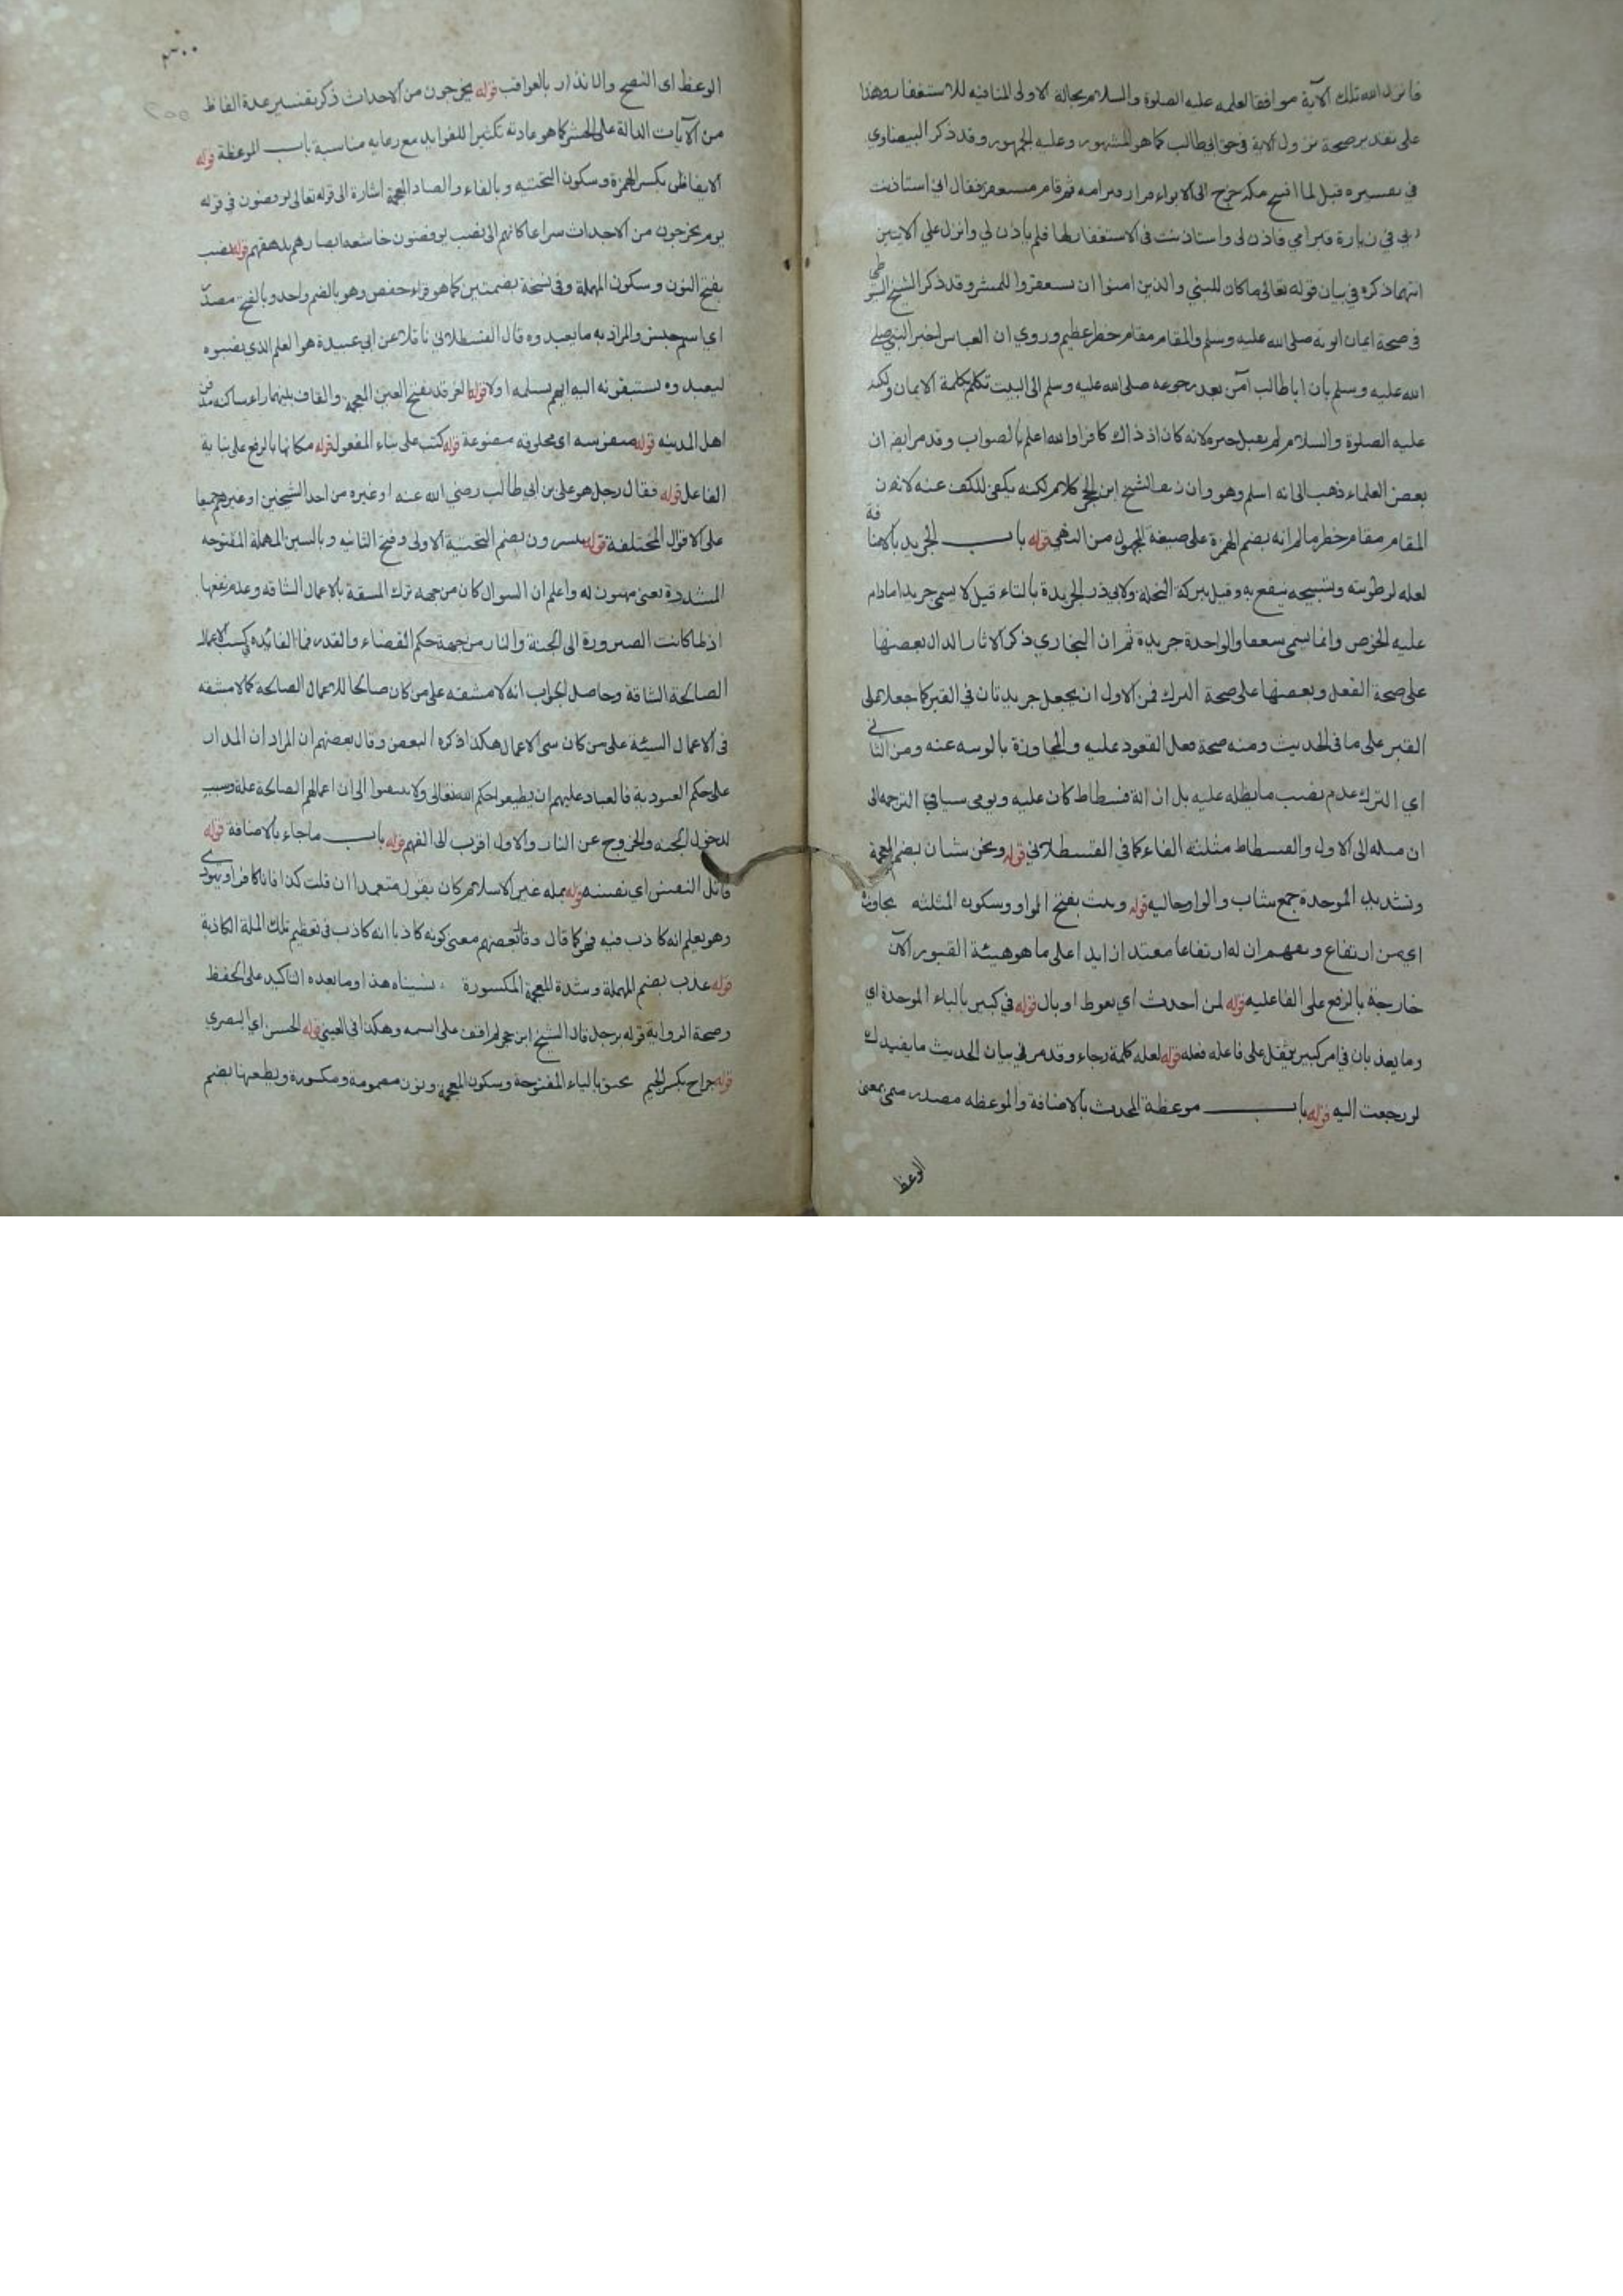 فانزل الله تلك الآية موافقا لعلمه عليه الصلوة والسلام بحالة الاولى المنافيه للاستغفار وهذا
على تقدير صحة نزول الاية في حق ابي طالب كما هو المشهور وعليه الجمهور وقد ذكر البيضاوي
في تفسيره قيل لما افتتح مكه خرج الى الابواء فزار قبر امه ثم قام مستعبرا فقال اني استاذنت
ربي في زيارة قبر امي فاذن لى واستاذنت في الاستغفار لها فلم ياذن لي وانزل علي الايتين
انتها ذكره في بيان قوله تعالى ماكان للنبي والذين امنوا ان يستغفروا للمشر وقد ذكر الشيخ السيوطي
في صحة ايمان ابويه صلى الله عليه وسلم والمقام مقام خطر عظيم وروي ان العباس اخبر النبي صلى
الله عليه وسلم بان ابا طالب آمن بعد رجوعه صلى الله عليه وسلم الى البيت تكلم بكلمة الايمان ولكنه
عليه الصلوة والسلام لم يقبل خبره لانه كان اذ ذاك كافرا والله اعلم بالصواب وقد مر ايضا ان
بعض العلماء ذهب الى انه اسلم وهو وان زيف الشيخ ابن الحجر كلام لكنه يكفي للكف عنه لانه ن
المقام مقام خطر مالم انه بضم الهمزة على صيغة المجهول من الذهي قوله باب الجريد بالاضافة
لعله لرطوبته وتسبيحه ينفع به وقيل ببركة النخلة ولابي ذر الجريدة بالتاء قيل لا يسمى جريدا مادام
عليه الخوص وانما يسمى سعفا والواحدة جريدة ثم ان البخاري ذكر الاثار الدال بعضها
على صحة الفعل وبعضها على صحة الترك فمن الاول ان يجعل جريدتان في القبر كما جعلا على
القبر على ما في الحديث ومنه صحة فعل القعود عليه والمجاوزة بالوسه عنه ومن الثاني
اي الترك عدم نصب مايظله عليه بل ازالة فسطاط كان عليه ويومى سياق الترجمه الى
ان ميله الى الاول والفسطاط مثلثه الفاء كما في القسطلاني قوله ونحن شبان بضم المعجمة
وتشديد الموحدة جمع شاب والواو حاليه قوله وثبت بفتح الواو وسكون المثلثه يجاوزه
اي من ارتفاع ويفهم ان له ارتفاعا معتد ازايدا على ما هو هيئة القبور الآن
خارجة بالرفع على الفاعليه قوله لمن احدث اي تغوط او بال قوله في كبير بالباء الموحدة اي
وما يعذبان في امر كبير يثقل على فاعله فعله قوله لعله كلمة رجاء وقد مر في بيان الحديث ما يفيدك
لو رجعت اليه قوله باب موعظة المحدث بالاضافة والموعظه مصدر ميمى بمعنى
الوعظ
٣٠٠
الوعظ اى النصح والانذار بالعواقب قوله يخرجون من الاحداث ذكر بتفسير عدة الفاظ
من الآيات الدالة على الحشر كما هو عادته تكثيرا للفوايد مع رعايه مناسبة باب الموعظة قوله
الايفاظى بكسر الهمزة وسكون التحتيه وبالفاء والضاد المعجمة اشارة الى قوله تعالى يوفضون في قوله
يوم يخرجون من الاجداث سراعا كانهم الى نصب يوفضون خاشعة ابصارهم ترهقهم قوله نصب
بفتح النون وسكون المهملة وفي نسخة بضمتين كما هو قراء حفص وهو بالضم واحد وبالفتح مصدر
اي اسم جنس والمراد به مايعبد وه قال القسطلاني ناقلا عن ابي عبيدة هو العلم الذي نصبوه
ليعبد وه يستبقونه اليه ايهم يستلمه اولا قوله الغرقد بفتح الغين المعجمة والقاف بينهما راء ساكنه مدفن
اهل المدينه قوله منفوسه اى مخلوقه مصنوعة قوله كتب على بناء المفعول قوله مكانها بالرفع على نيابة
الفاعل قوله فقال رجل هو على بن ابي طالب رضي الله عنه او غيره من احد الشيخين او غيرهم جميعا
على الاقوال المختلفة قوله ييسرون بضم التحتية الاولى وفتح الثانيه وبالسين المهملة المفتوحه
المشددة يعنى مهيئون له واعلم ان السوال كان من جهه ترك المشقة بالاعمال الشاقه وعدم نفعها
اذ لما كانت الصيرورة الى الجنة والنار من جهة حكم القضاء والقدر فما الفائده في كسب الاعمال
الصالحة الشاقة وحاصل الجواب انه لا مشقه على من كان صالحا للاعمال الصالحه كما لا مشقه
في الاعمال السيئة على من كان سى الاعمال هكذا ذكره البعض وقال بعضهم ان المراد ان المدار
على حكم العبودية فالعباد عليهم ان يطيعوا حكم الله تعالى ولا يلتفتوا الى ان اعمالهم الصالحة علة وسبب
لدخول الجنه والخروج عن النار والاول اقرب الى الفهم قوله باب ماجاء بالاضافة قوله
قاتل النفس اي نفسه قوله بمله غير الاسلام كان يقول متعمدا ان فلت كذا فانا كافر او يهودي
وهو يعلم انه كاذب فيه فهو كما قال وقال بعضهم معنى كونه كاذبا انه كاذب في تعظيم تلك الملة الكاذبة
قوله عذب بضم المهملة وشدة المعجمة المكسورة نسيناه هذا وما بعده التاكيد على الحفظ
وصحة الرواية قوله برجل قال الشيخ ابن حجر لم اقف على اسمه وهكذا في العيني قوله الحسن اي البصري
قوله جراح بكسر الجيم يخنق بالياء المفتوحة وسكون المعجمة ونون مضمومة ومكسورة ويطعنها بضم